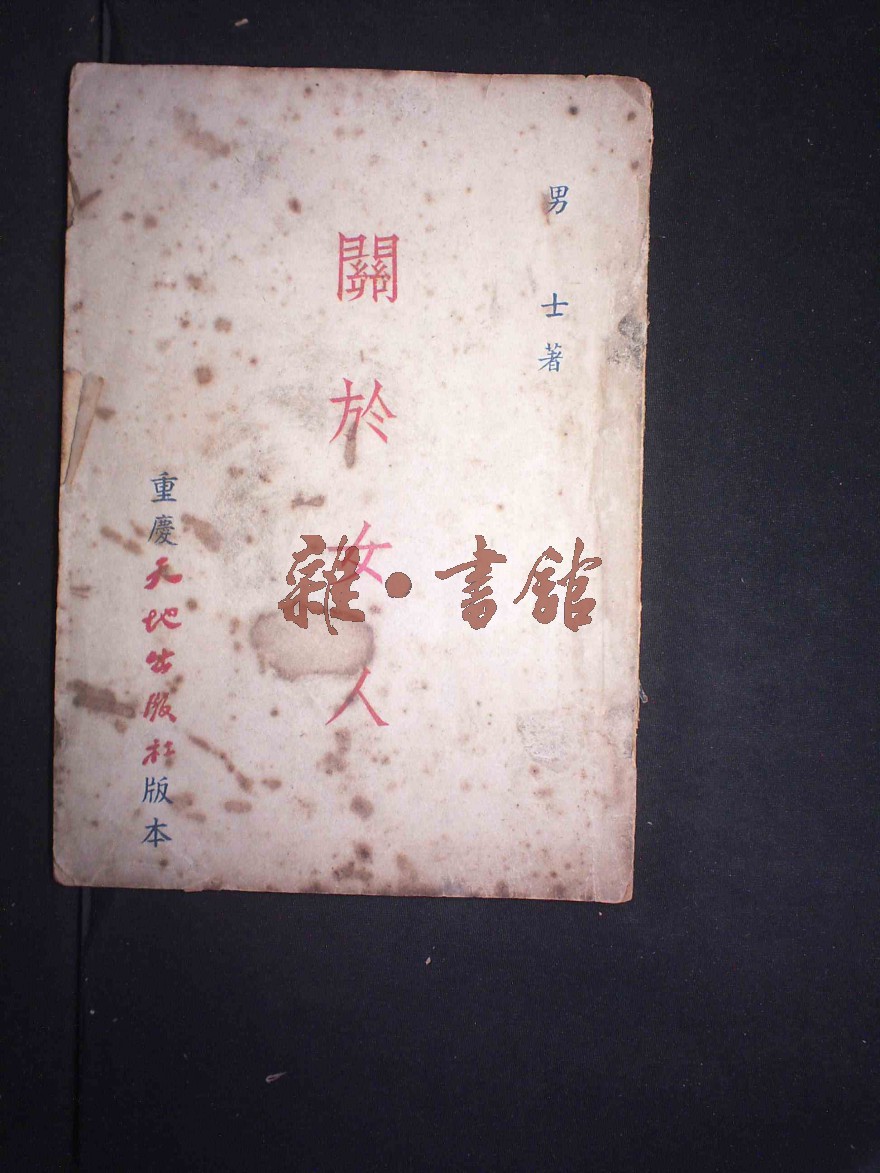 男士著
關於女人
重慶天地出版社版本
雜·書館